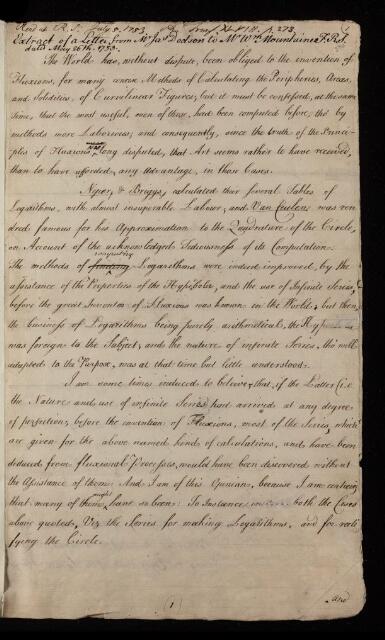 Read at R. S. July 5. 1753. Vol. XLVIII. p. 273.
Extract of a Letter from Mr. Jas. Dodson to Mr. Wm. Mountaine F.R.S.
dated May 26th. 1753.
The World has, without dispute, been obliged to the invention of
Fluxions, for many concise Methods of Calculating the Peripheries, Areas,
and Solidities, of Curvilinear Figures; but it must be confessed, at the same
time, that the most useful, even of these, had been computed before, tho' by
methods more Laborious; and consequently, since the truth of the Princi-
ples of Fluxions was long disputed, that Art seems rather to have received,
than to have afforded, any Advantage, in those Cases.
Neper, & Briggs, calculated their several Tables of
Logarithms, with almost insuperable Labour, and Van Ceulen was ren
dred famous for his Approximation to the Quadrature of the Circle,
on Account of the acknowledged Tediousness of its Computation.
computing
The methods of finding Logarithms were indeed improved, by the
assistance of the Properties of the Hyperbola, and the use of Infinite Series,
before the great Invention of Fluxions was known in the World; but then
the business of Logarithms being purely arithmetical, the
was foreign to the Subject, and the nature of infinite Series, tho' well
adapted to the Purpose, was at that time but little understood.
I am some times induced to believe, that, if the Latter (i.e.
the Nature and use of infinite Series) had arrived at any degree
of perfection, before the invention of Fluxions, most of the Series, which
are given for the above named kind of calculations, and have been
deduced from fluxional Processes, would have been discovered without
the Assistance of them: And I am of this Opinion, because I am certain
might
that many of them have so been: To Instance in both the Cases
above quoted, Viz. the Series for making Logarithms, and for recti
fying the Circle.
And
(1)